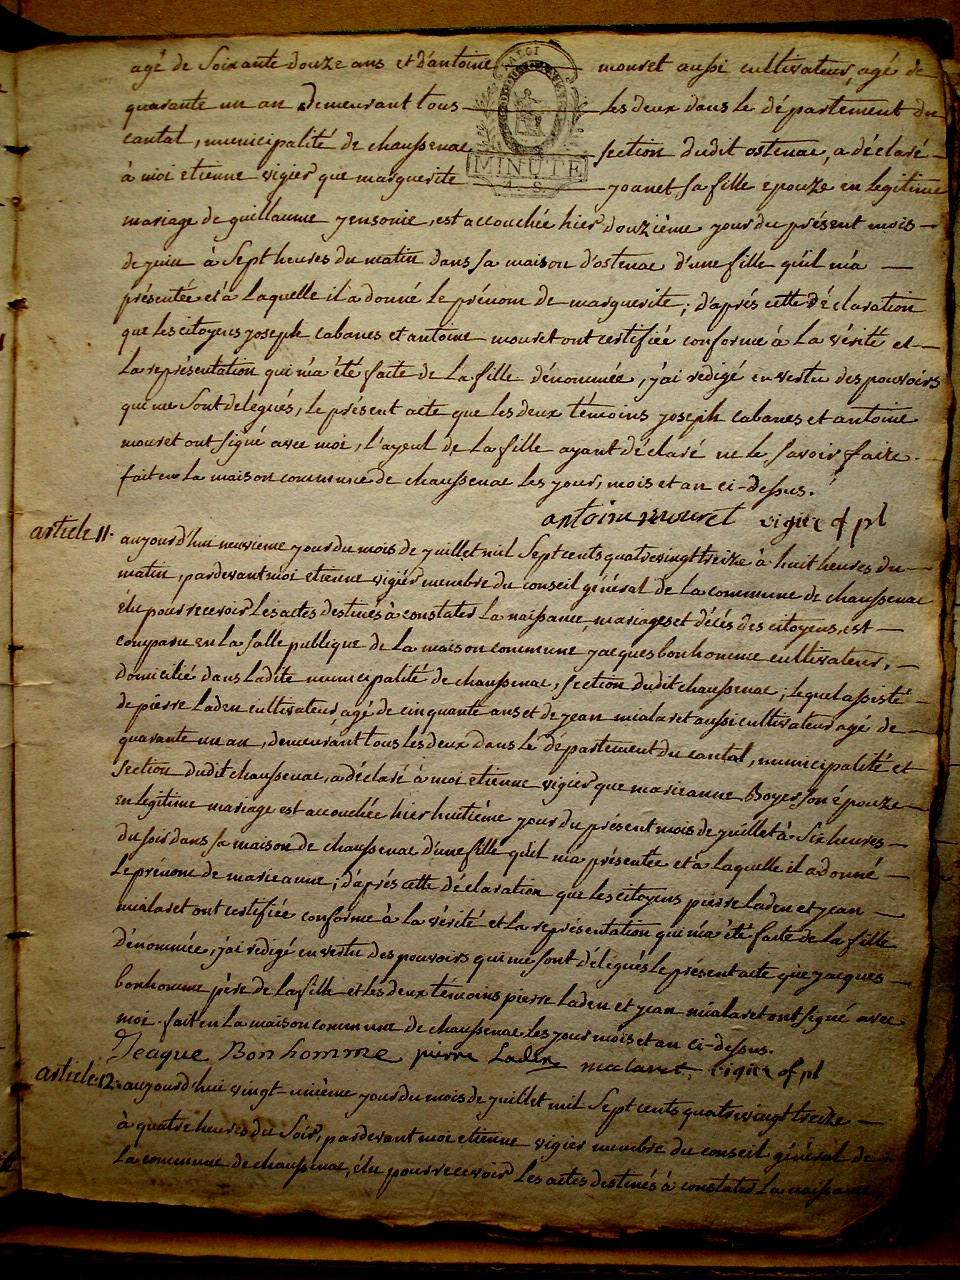 agé de Soixante douze ans et d'antoine mouret aussi cultivateur, agé de
quarante un an, demeurant tous les deux dans le département du
cantal, municipalité de chaussenac section dudit ostenac, a déclaré
à moi etienne vigier que marguerite joanet sa fille epouze en legitime
mariage de guillaume jensonie, est accouchée hier douzième jour du présent mois
de juin à Sept heures du matin dans sa maison d'ostenac d'une fille qu'il m'a
présentée et à laquelle il a donné le prénom de marguerite; d'après cette déclaration
que les citoyens joseph cabanes et antoine mouret ont certifiée conforme à la vérité et
la représentation qui m'a été faite de la fille dénommée, j'ai redigé en vertu des pouvoirs
qui me sont delegués, le présent acte que les deux témoins joseph cabanes et antoine
mouret ont signé avec moi, l'ayeul de la fille ayant déclaré ne le savoir faire.
fait en la maison commune de chaussenac les jour, mois et an ci-dessus.
MINUTE
antoine mouret vigier of pl
article 11. aujourd'hui neuvieme jour du mois de juillet mil Sept cents quatrevingt treize à huit heures du
matin, pardevant moi etienne vigier membre du conseil général de la commune de chaussenac
élu pour recevoir les actes destinés à constater la naissance, mariages et décés des citoyens, est
comparu en la salle publique de la maison commune jacques bonhomme cultivateur,
domicilié dans ladite municipalité de chaussenac, section dudit chaussenac; lequel assisté
de pierre laden cultivateur, agé de cinquante ans et de jean mialaret aussi cultivateur agé de
quarante un an, demeurant tous les deux dans le département du cantal, municipalité et
section dudit chaussenac, a déclaré à moi etienne vigier que marieanne Boyer son épouze
en legitime mariage est accouchée hier huitième jour du présent mois de juillet à Six heures
du soir dans sa maison de chaussenac d'une fille qu'il m'a présentée et à laquelle il a donné
le prénom de marieanne; d'après cette déclaration que les citoyens pierre laden et jean
mialaret ont certifiée conforme à la vérité et la représentation qui m'a été faite de la fille
dénommée, j'ai redigé en vertu des pouvoirs qui me sont délégués le présent acte que jacques
bonhomme père de la fille et les deux témoins pierre laden et jean mialaret ont signé avec
moi. fait en la maison commune de chaussenac les jour mois et an ci-dessus.
Jeaque Bonhomme pierre Laden mialaret, vigier of pl
article 12. aujourd'hui vingt-unième jour du mois de juillet mil Sept cents quatrevingt treize
à quatre heures du Soir, pardevant moi etienne vigier membre du conseil général de
la commune de chaussenac, élu pour recevoir les actes destinés à constater la naissance,